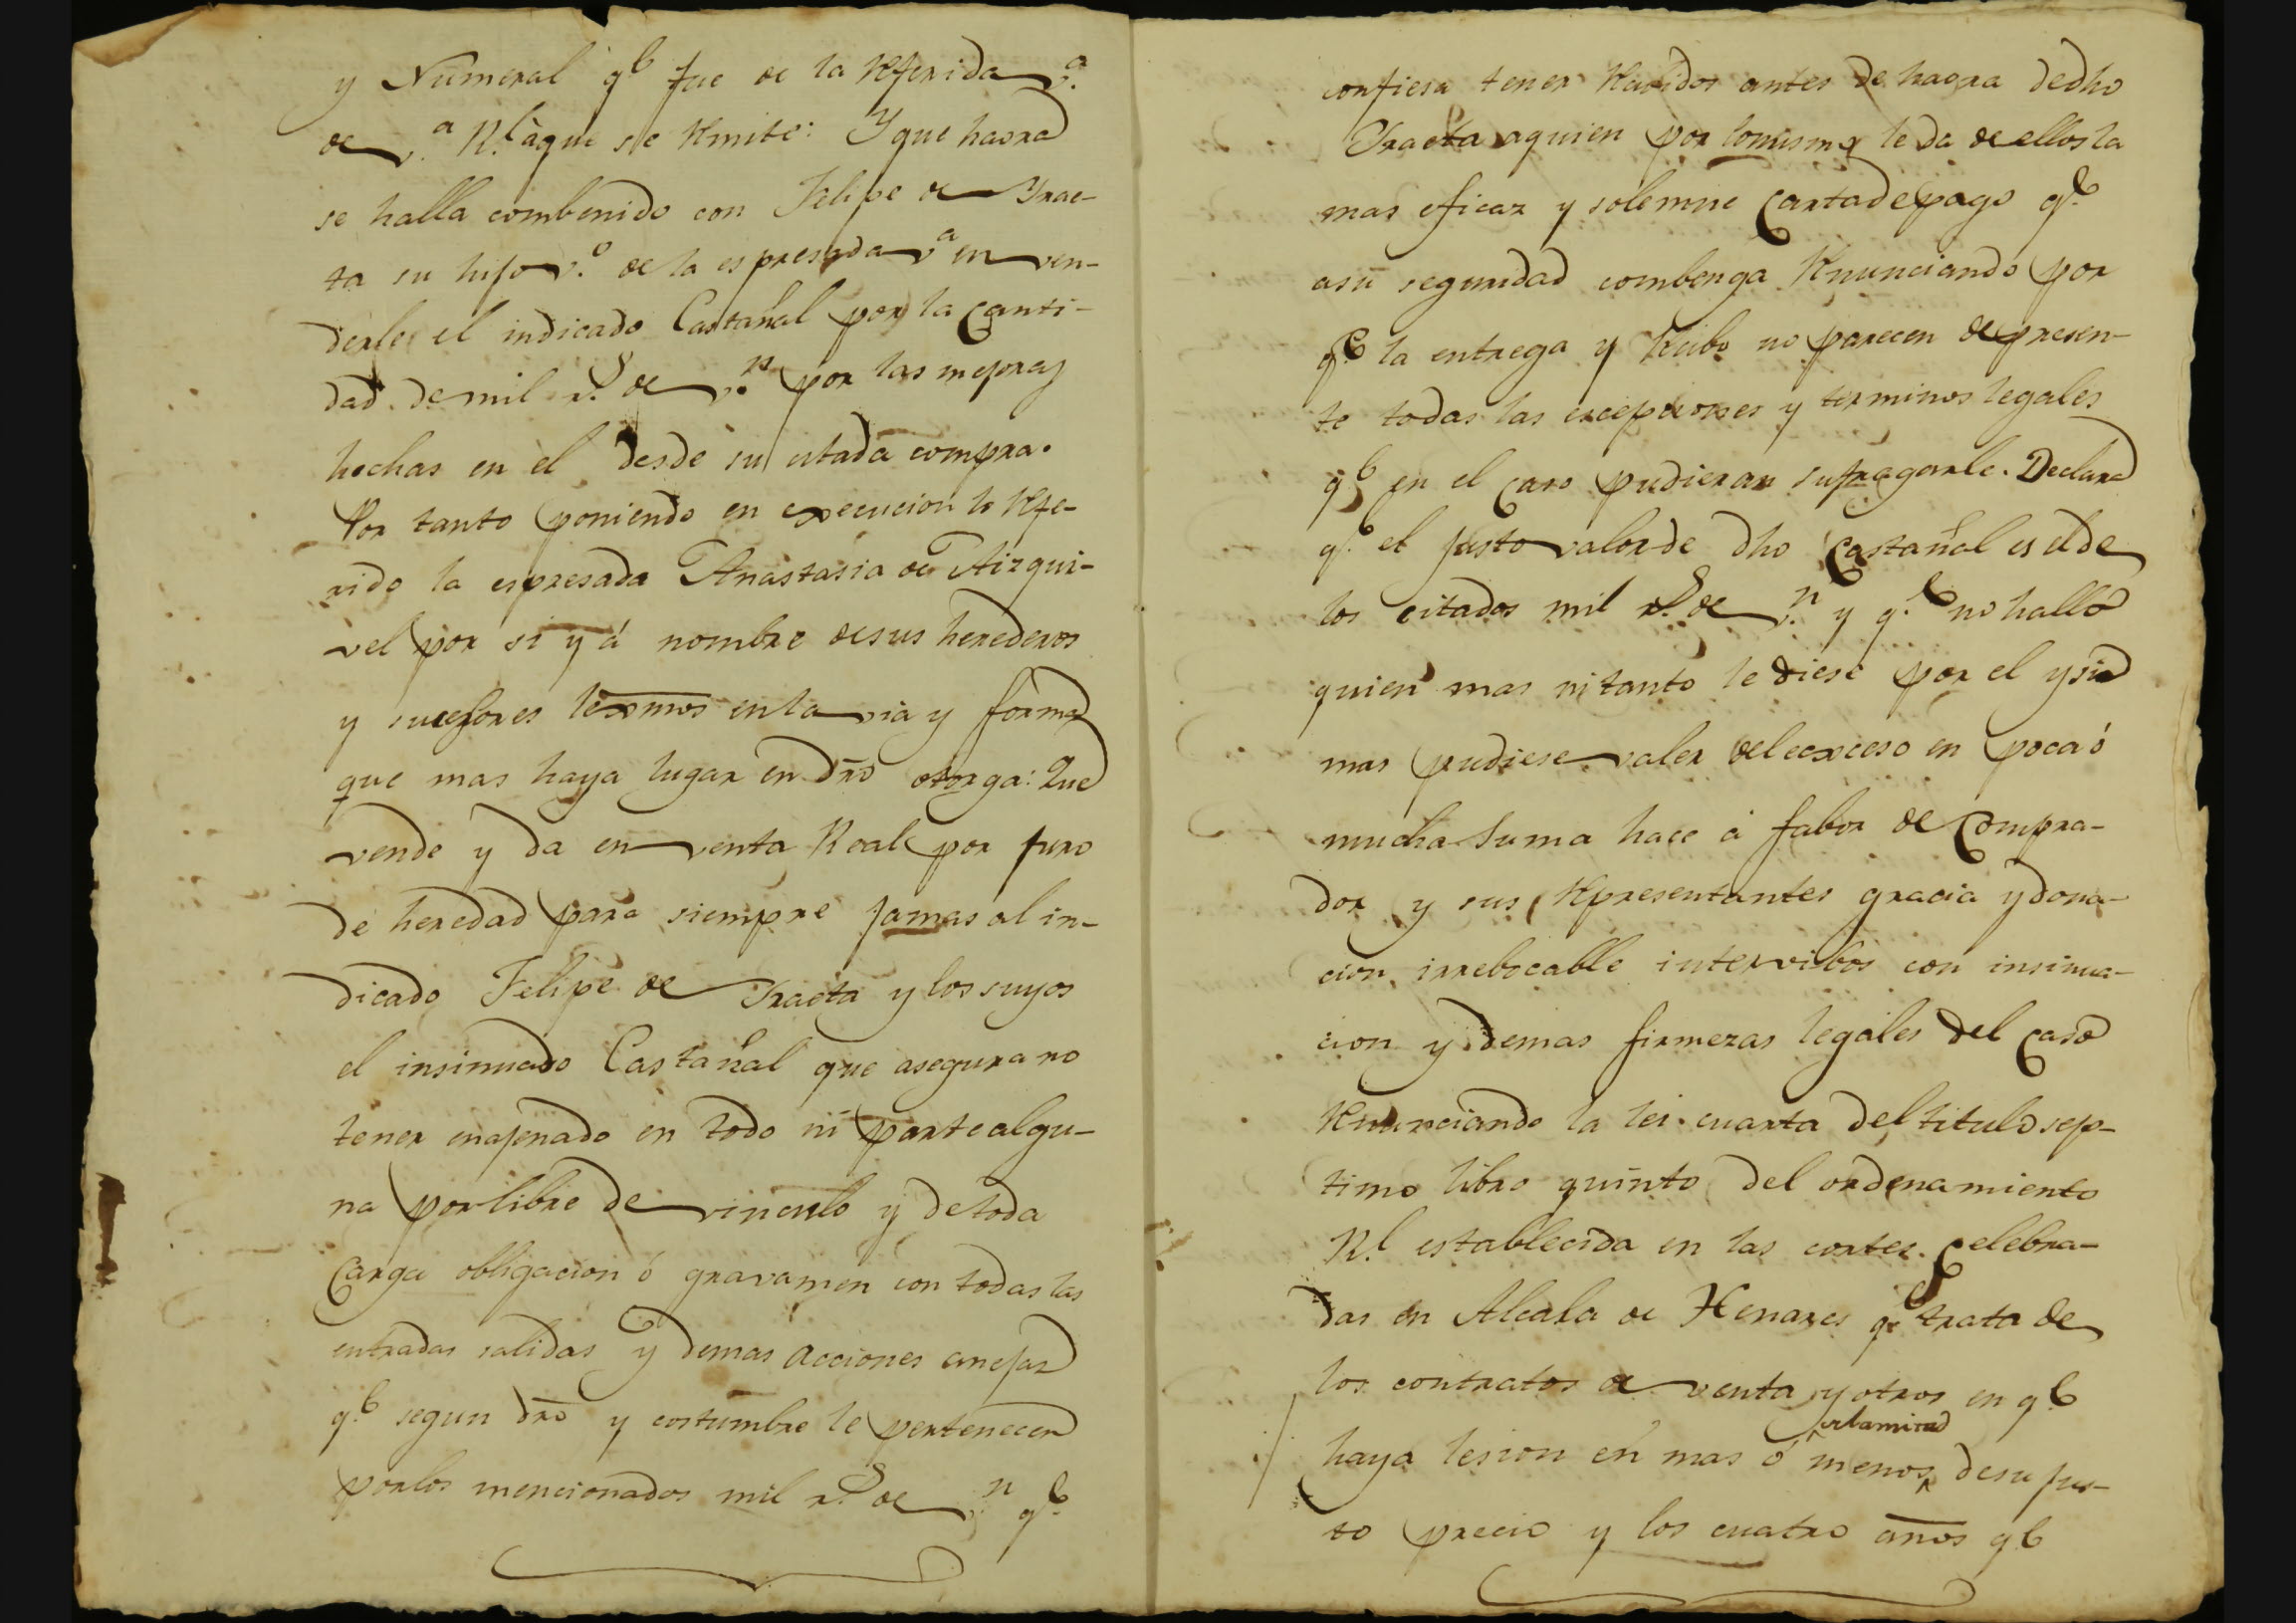 y Numeral q.e fue de la Referida v.a
de v.a R.l à que se Rmite: Y que haora
se halla combenido con Felipe de Yrae-
ta su hijo v.o de la espresada v.a en ven-
derle el indicado Castañal por la canti-
dad de mil r.s de v.n por las mejoras
hechas en el desde su citada compra.
Por tanto poniendo en execucion lo Rfe-
rido la espresada Anastasia de Aizqui-
vel por si y á nombre de sus herederos
y sucesores lexmos en la via y forma
que mas haya lugar en dro otorga: Que
vende y da en venta Real por juro
de heredad para siempre jamas al in-
dicado Felipe de Yraeta y los suyos
el insinuado Castañal que asegura no
tener enajenado en todo ni parte algu-
na por libre de vinculo y de toda
Carga obligacion ó gravamen con todas las
entradas salidas y demas acciones anejas
q.e segun dro y costumbre le pertenecen
por los mencionados mil r.s de v.n q.e
confiesa tener Recividos antes de haora de dho
Yraeta a quien por lo mismo le da de ellos la
mas eficaz y solemne Carta de pago q.e
a su seguridad combenga Rnunciando por
q.e la entrega y Recibo no parecen de presen-
te todas las excepciones y terminos legales
q.e en el caso pudieran sufragarle. Declara
q.e el justo valor de dho Castañal es el de
los citados mil r.s de v.n y q.e no halló
quien mas ni tanto le diese por el y si
mas pudiese valer del exceso en poca ó
mucha suma hace á fabor de Compra-
dor y sus Rpresentantes gracia y dona-
cion irrebocable intervibos con insinua-
cion y demas firmezas legales del caso
Rnunciando la lei cuarta del titulo sep-
timo libro quinto del ordenamiento
R.l establecida en las cortes Celebra-
das en Alcala de Henares q.e trata de
los contratos de venta y otros en q.e
haya lesion en mas ó menos de la mitad de su jus-
to precio y los cuatro años q.e